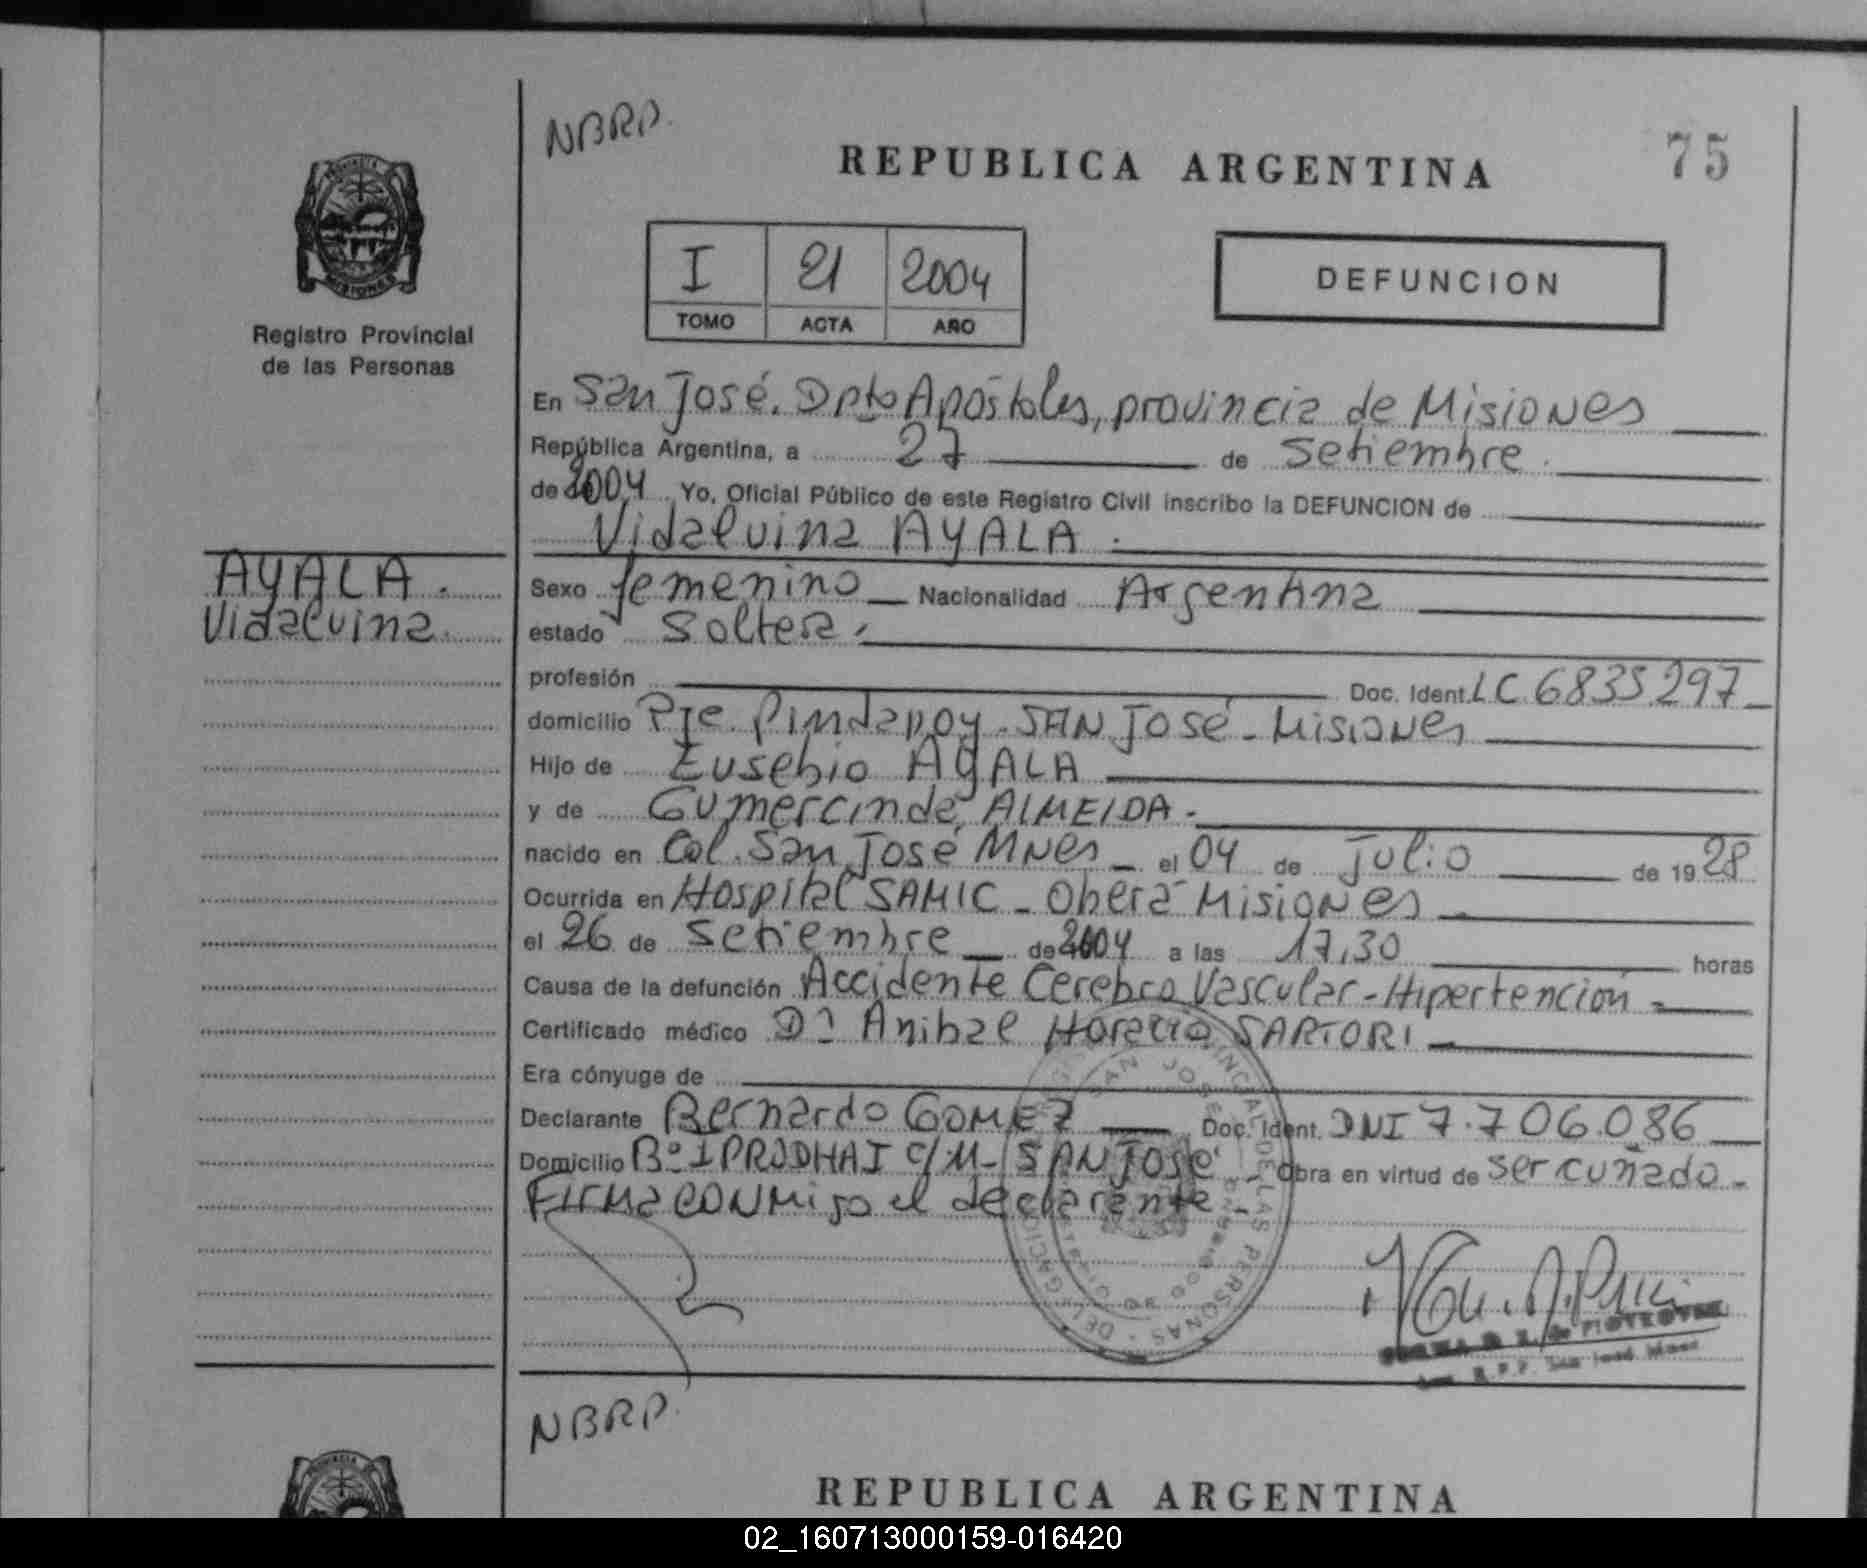 NBRP.
REPUBLICA ARGENTINA
75
Registro Provincial
de las Personas
I 21 2004
TOMO ACTA AÑO
DEFUNCION
En San José. Dpto Apóstoles, provincia de Misiones
República Argentina, a 27 de Setiembre.
de 2004 Yo, Oficial Público de este Registro Civil inscribo la DEFUNCION de
Vidalvina AYALA.
AYALA.
Vidalvina
Sexo femenino Nacionalidad Argentina
estado Soltera.
profesión Doc. Ident. LC 6835297
domicilio Pje. Pindapoy. SAN José - Misiones
Hijo de Eusebio AYALA
y de Gumercinde ALMEIDA.
nacido en Col. San José Mnes el 04 de Julio de 1928
Ocurrida en Hospital SAMIC - Oberá Misiones
el 26 de Setiembre de 2004 a las 17,30 horas
Causa de la defunción Accidente Cerebro Vascular - Hipertención
Certificado médico Dr Anibal Horacio SARTORI
Era cónyuge de
Declarante Bernardo GOMEZ Doc. Ident. DNI 7.706.086
Domicilio Bº IPRODHAI C/M - SAN José Obra en virtud de ser cuñado
Firma conmigo el declarante.
SAN JOSE
DE LAS PERSONAS
R.P.P. San José
NBRP.
REPUBLICA ARGENTINA
02_160713000159-016420